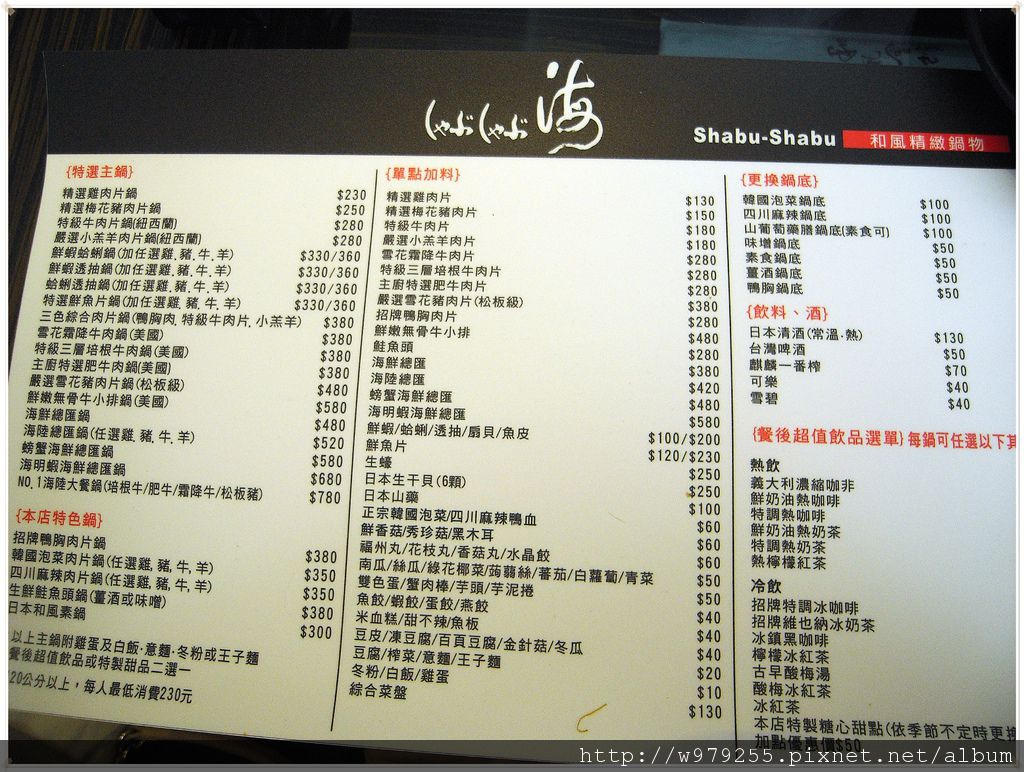 しゃぶしゃぶ 海
Shabu-Shabu 和風精緻鍋物
{特選主鍋}
精選雞肉片鍋 $230
精選梅花豬肉片鍋 $250
特級牛肉片鍋(紐西蘭) $280
嚴選小羔羊肉片鍋(紐西蘭) $280
鮮蝦蛤蜊鍋(加任選雞.豬.牛.羊) $330/360
鮮蝦透抽鍋(加任選雞.豬.牛.羊) $330/360
蛤蜊透抽鍋(加任選雞.豬.牛.羊) $330/360
特選鮮魚片鍋(加任選雞.豬.牛.羊) $330/360
三色綜合肉片鍋(鴨胸肉.特級牛肉片.小羔羊) $380
雪花霜降牛肉鍋(美國) $380
特級三層培根牛肉鍋(美國) $380
主廚特選肥牛肉鍋(美國) $380
嚴選雪花豬肉片鍋(松板級) $480
鮮嫩無骨牛小排鍋(美國) $580
海鮮總匯鍋 $480
海陸總匯鍋(任選雞.豬.牛.羊) $520
螃蟹海鮮總匯鍋 $580
海明蝦海鮮總匯鍋 $680
NO.1海陸大餐鍋(培根牛/肥牛/霜降牛/松板豬) $780
{本店特色鍋}
招牌鴨胸肉片鍋 $380
韓國泡菜肉片鍋(任選雞,豬,牛,羊) $350
四川麻辣肉片鍋(任選雞,豬,牛,羊) $350
生鮮鮭魚頭鍋(薑酒或味噌) $380
日本和風素鍋 $300
以上主鍋附雞蛋及白飯·意麵·冬粉或王子麵
餐後超值飲品或特製甜品二選一
120公分以上，每人最低消費230元
{單點加料}
精選雞肉片 $130
精選梅花豬肉片 $150
特級牛肉片 $180
嚴選小羔羊肉片 $180
雪花霜降牛肉片 $280
特級三層培根牛肉片 $280
主廚特選肥牛肉片 $280
嚴選雪花豬肉片(松板級) $380
招牌鴨胸肉片 $280
鮮嫩無骨牛小排 $480
鮭魚頭 $280
海鮮總匯 $380
海陸總匯 $420
螃蟹海鮮總匯 $480
海明蝦海鮮總匯 $580
鮮蝦/蛤蜊/透抽/扇貝/魚皮 $100/$200
鮮魚片 $120/$230
生蠔 $250
日本生干貝(6顆) $250
日本山藥 $100
正宗韓國泡菜/四川麻辣鴨血 $60
鮮香菇/秀珍菇/黑木耳 $60
福州丸/花枝丸/香菇丸/水晶餃 $60
南瓜/絲瓜/綠花椰菜/蒟蒻絲/蕃茄/白蘿蔔/青菜 $50
雙色蛋/蟹肉棒/芋頭/芋泥捲 $50
魚餃/蝦餃/蛋餃/燕餃 $40
米血糕/甜不辣/魚板 $40
豆皮/凍豆腐/百頁豆腐/金針菇/冬瓜 $40
豆腐/榨菜/意麵/王子麵 $20
冬粉/白飯/雞蛋 $10
綜合菜盤 $130
{更換鍋底}
韓國泡菜鍋底 $100
四川麻辣鍋底 $100
山葡萄藥膳鍋底(素食可) $100
味增鍋底 $50
素食鍋底 $50
薑酒鍋底 $50
鴨胸鍋底 $50
{飲料、酒}
日本清酒(常溫·熱) $130
台灣啤酒 $50
麒麟一番榨 $70
可樂 $40
雪碧 $40
{餐後超值飲品選單}每鍋可任選以下其
熱飲
義大利濃縮咖非
鮮奶油熱咖啡
特調熱咖啡
鮮奶油熱奶茶
特調熱奶茶
熱檸檬紅茶
冷飲
招牌特調冰咖啡
招牌維也納冰奶茶
冰鎮黑咖啡
檸檬冰紅茶
古早酸梅湯
酸梅冰紅茶
冰紅茶
本店特製糖心甜點(依季節不定時更換
加點優惠價$50
http://w979255.pixnet.net/album